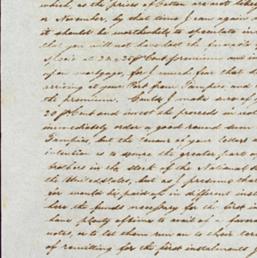 which, as the prices of Cotton are not likely
or November, by that time I can again
it should be worth while to speculate in
that you will not have lost the
specie at 20, a 20 p Cent premium and in
of on mortgage, for I much fear that
arriving at your Port from Tampico and
the premium. Could I make sure of
20 p Cent and invest the proceeds in
immediately order a good round sum
Tampico, but the tenor of your letters
intention is to secure the greater part of
holders in the stock of the national
the United States, but as I presume that
ion would be paid up in different inst
here the funds necessary for the first in
have plenty of time to avail of a favora
notes, or to let them run on to their
of remitting for the first instalments